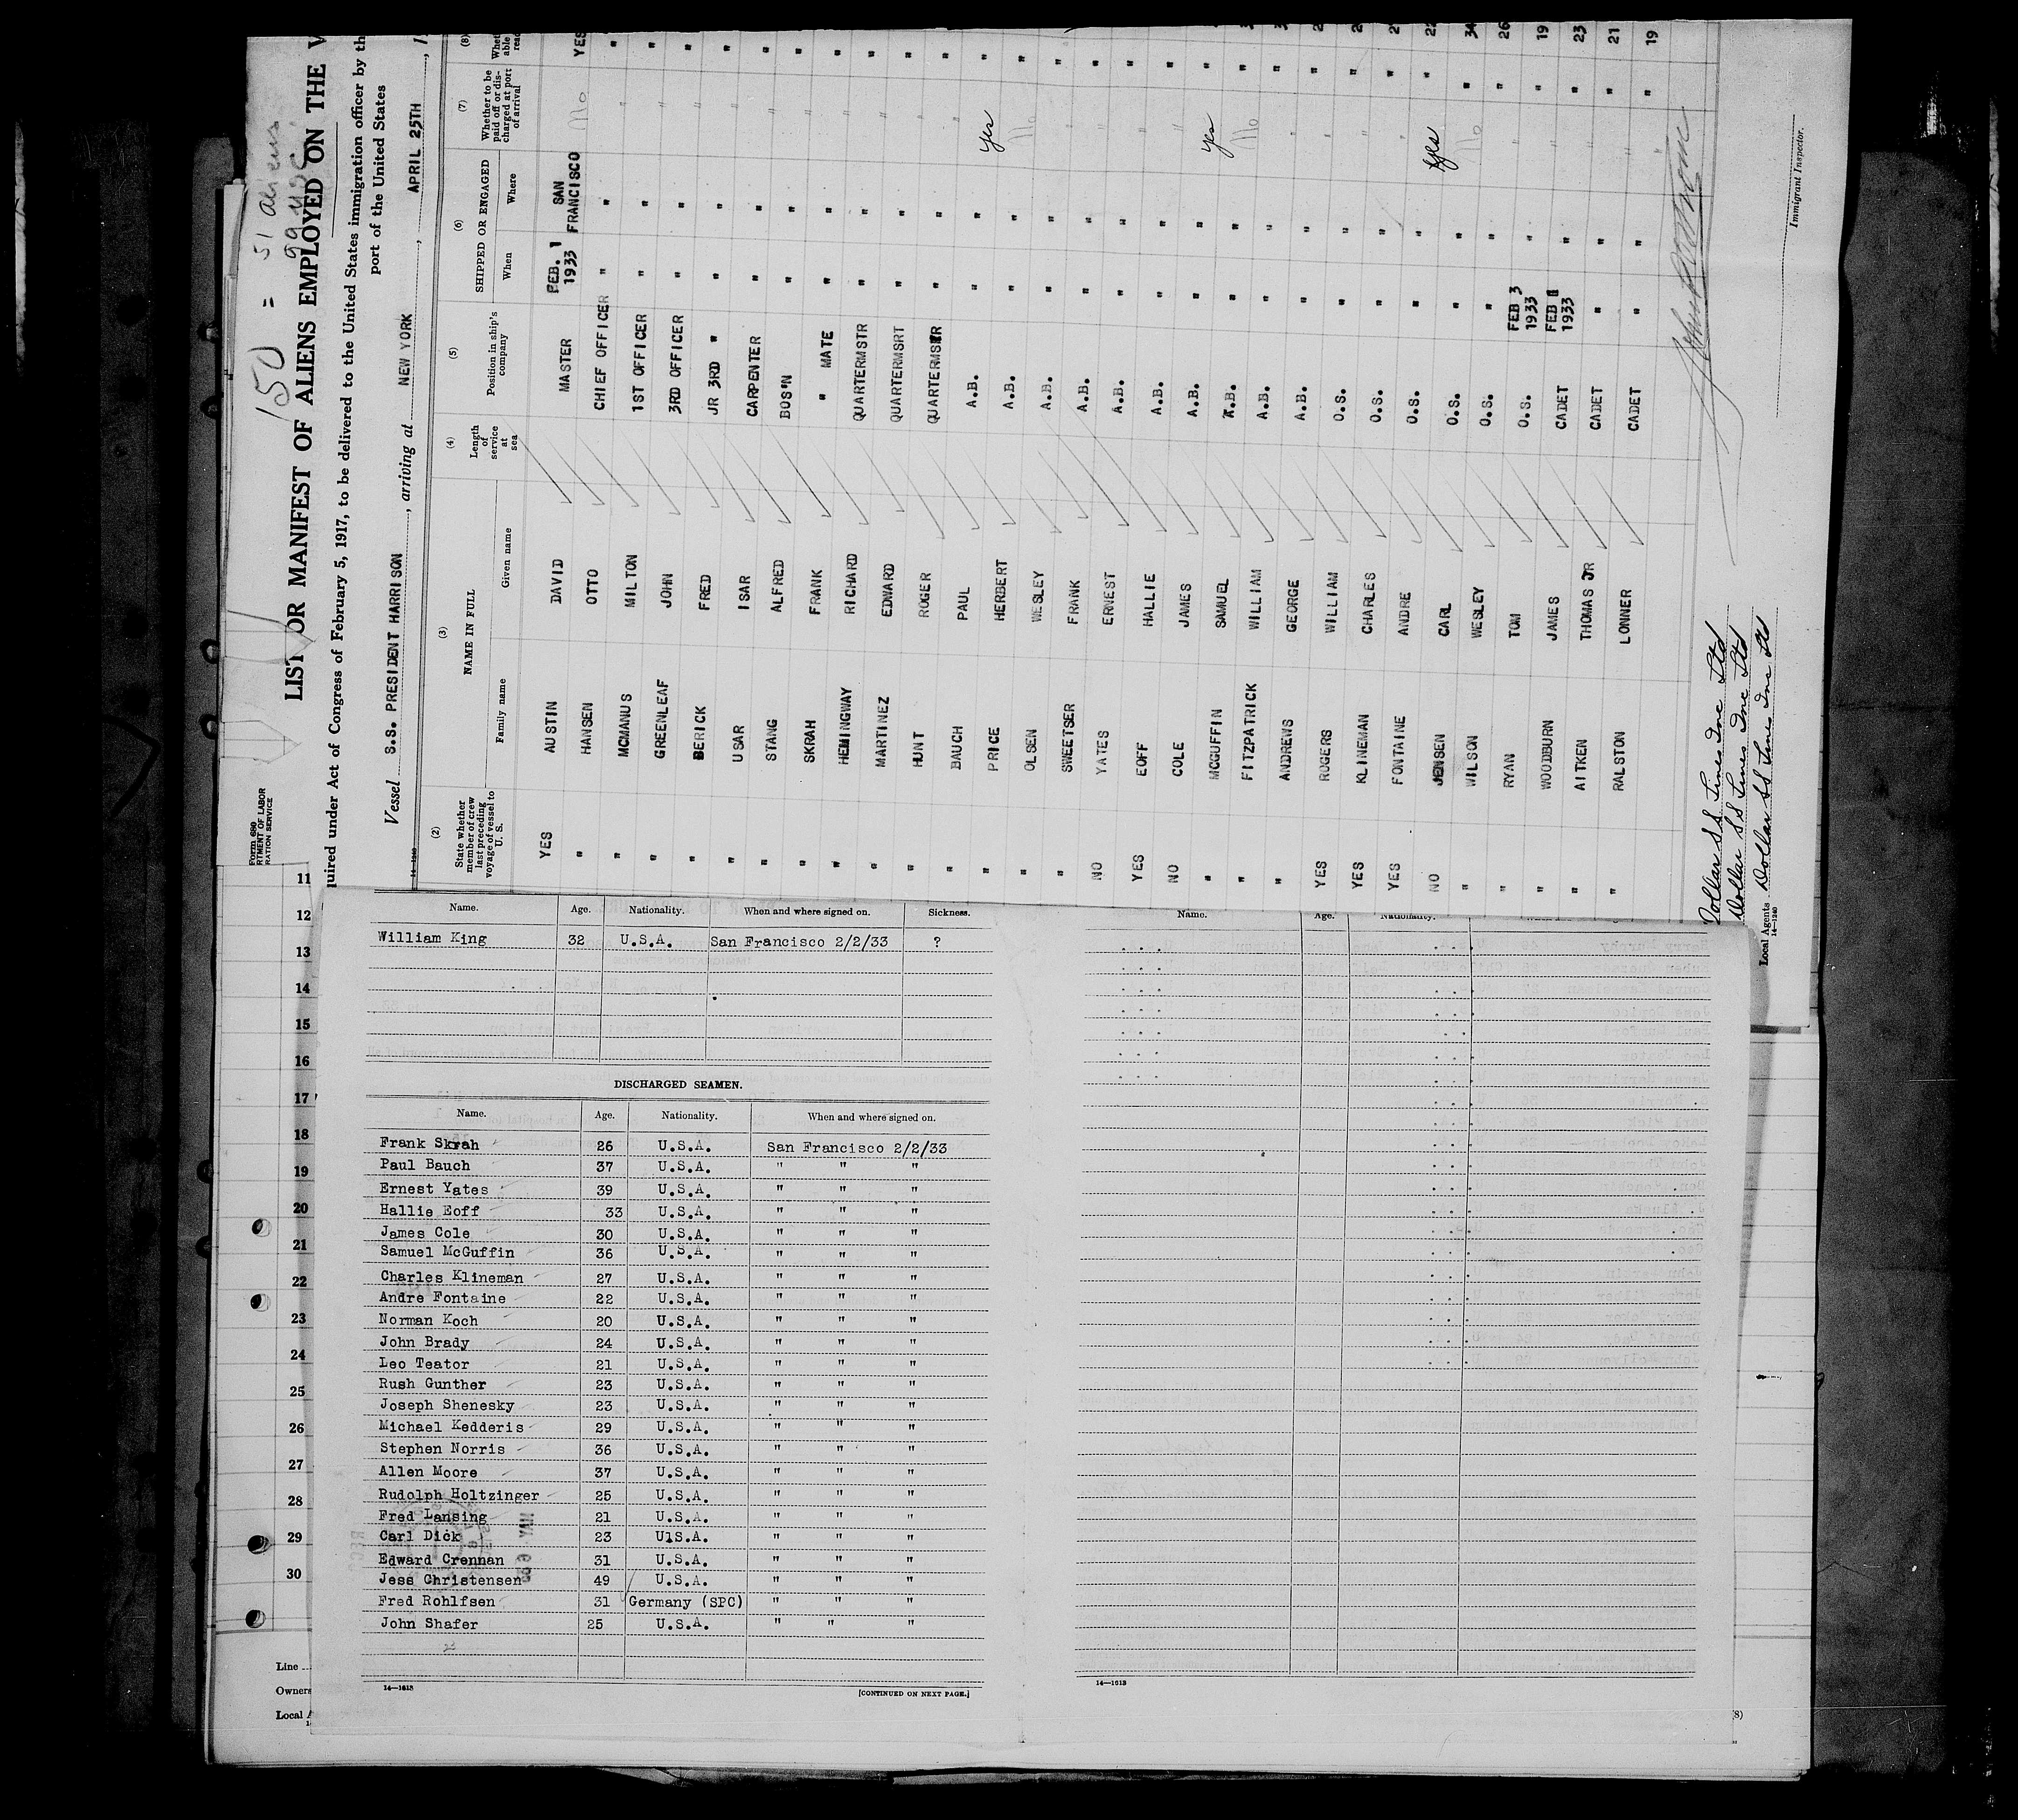 150 = 51 aliens
99 USC
Form 680
RTMENT OF LABOR
RATION SERVICE
LIST OR MANIFEST OF ALIENS EMPLOYED ON THE V
quired under Act of Congress of February 5, 1917, to be delivered to the United States immigration officer by th
port of the United States
Vessel S.S. PRESIDENT HARRISON, arriving at NEW YORK, APRIL 25TH, 1
14—1240
(2) (3) (4) (5) (6) (7) (8)
State whether member of crew last preceding voyage of vessel to U. S. NAME IN FULL Family name Given name Length of service at sea Position in ship's company SHIPPED OR ENGAGED When Where Whether to be paid off or discharged at port of arrival
YES AUSTIN DAVID MASTER FEB. 1 1933 SAN FRANCISCO No YES
" HANSEN OTTO CHIEF OFFICER " " " "
" MCMANUS MILTON 1ST OFFICER " " " "
" GREENLEAF JOHN 3RD OFFICER " " " "
" BERICK FRED JR 3RD " " " " "
" USAR ISAR CARPENTER " " " "
" STANG ALFRED BOS'N " " " "
" SKRAH FRANK " MATE " " " "
" HEMINGWAY RICHARD QUARTERMSTR " " " "
" MARTINEZ EDWARD QUARTERMSRT " " " "
" HUNT ROGER QUARTERMSTR " " " "
" BAUCH PAUL A.B. " " yes "
" PRICE HERBERT A.B. " " No "
" OLSEN WESLEY A.B. " " " "
" SWEETSER FRANK A.B. " " " "
NO YATES ERNEST A.B. " " " "
YES EOFF HALLIE A.B. " " " "
NO COLE JAMES A.B. " " " "
" MCGUFFIN SAMUEL A.B. " " yes "
" FITZPATRICK WILLIAM A.B. " " No "
" ANDREWS GEORGE A.B. " " " "
YES ROGERS WILLIAM O.S. " " " "
YES KLINEMAN CHARLES O.S. " " " "
YES FONTAINE ANDRE O.S. " " " "
NO JENSEN CARL O.S. " " yes " 22
" WILSON WESLEY O.S. " " No " 34
" RYAN TOM O.S. FEB 3 1933 " " " 26
" WOODBURN JAMES CADET FEB 1 1933 " " " 19
" AITKEN THOMAS JR CADET " " " " 23
" RALSTON LONNER CADET " " " " 21
19
Dollar SS Lines Inc Ltd
Dollar SS Lines Inc Ltd
Local Agents Dollar SS Lines Inc Ltd
14—1240
Immigrant Inspector.
11
12
13
14
15
16
17
18
19
20
21
22
23
24
25
26
27
28
29
30
Line
Owners
Local A
Name. Age. Nationality. When and where signed on. Sickness.
William King 32 U.S.A. San Francisco 2/2/33 ?
DISCHARGED SEAMEN.
Name. Age. Nationality. When and where signed on.
Frank Skrah 26 U.S.A. San Francisco 2/2/33
Paul Bauch 37 U.S.A. " " "
Ernest Yates 39 U.S.A. " " "
Hallie Eoff 33 U.S.A. " " "
James Cole 30 U.S.A. " " "
Samuel McGuffin 36 U.S.A. " " "
Charles Klineman 27 U.S.A. " " "
Andre Fontaine 22 U.S.A. " " "
Norman Koch 20 U.S.A. " " "
John Brady 24 U.S.A. " " "
Leo Teator 21 U.S.A. " " "
Rush Gunther 23 U.S.A. " " "
Joseph Shenesky 23 U.S.A. " " "
Michael Kedderis 29 U.S.A. " " "
Stephen Norris 36 U.S.A. " " "
Allen Moore 37 U.S.A. " " "
Rudolph Holtzinger 25 U.S.A. " " "
Fred Lansing 21 U.S.A. " " "
Carl Dick 23 UlS.A. " " "
Edward Crennan 31 U.S.A. " " "
Jess Christensen 49 U.S.A. " " "
Fred Rohlfsen 31 Germany (SPC) " " "
John Shafer 25 U.S.A. " " "
14—1613 [CONTINUED ON NEXT PAGE.]
Name. Age. Nationality.
14—1613
(8)